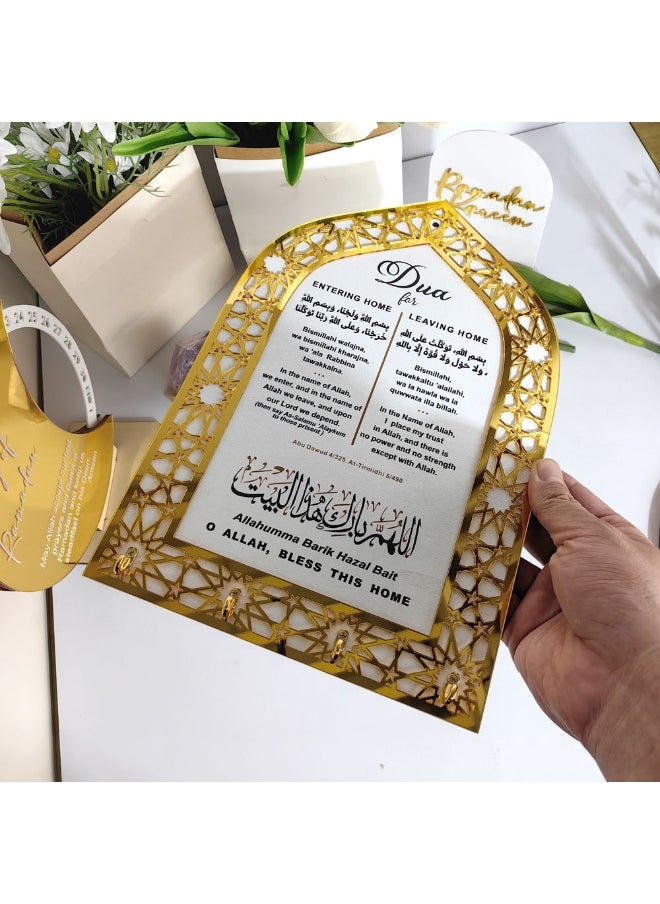 Ramadan
Kareem
Dua
for
ENTERING HOME
بِسْمِ اللهِ وَلَجْنَا، وَبِسْمِ اللهِ
خَرَجْنَا، وَعَلَى اللهِ رَبِّنَا تَوَكَّلْنَا
Bismillahi walajna,
wa bismillahi kharajna,
wa 'ala Rabbina
tawakkalna.
In the name of Allah,
we enter, and in the name of
Allah we leave, and upon
our Lord we depend.
(then say As-Salamu 'Alaykum
to those present.)
LEAVING HOME
بِسْمِ اللهِ، تَوَكَّلْتُ عَلَى اللهِ
، وَلَا حَوْلَ وَلَا قُوَّةَ إِلَّا بِاللهِ
Bismillahi,
tawakkaltu 'alallahi,
wa la hawla wa la
quwwata illa billah.
In the Name of Allah,
I place my trust
in Allah, and there is
no power and no strength
except with Allah.
Abu Dawud 4/325, At-Tirmidhi 5/490
اللهم بارك هذا البيت
Allahumma Barik Hazal Bait
O ALLAH, BLESS THIS HOME
24 25 26 27 28 29 30
Ramadan
May Allah accept
prayers and
Ramadan and keep us
steadfast on the Deen.
Ameen